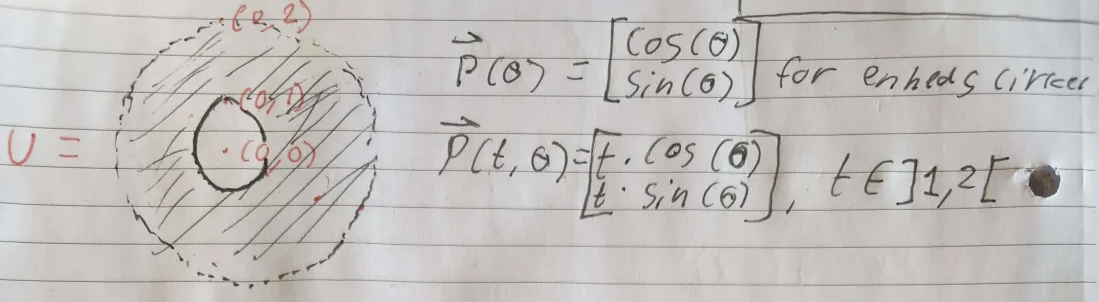 (0,2)
(0,1)
U = (0,0)
P⃗(θ) = [cos(θ) sin(θ)] for enheds cirkel
P⃗(t, θ) = [t · cos(θ) t · sin(θ)], t ∈ ]1,2[